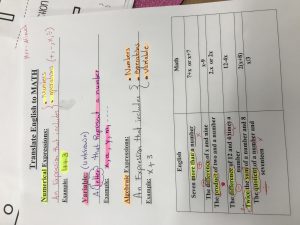 Translate English to MATH
Numerical Expressions:
An Expression that includes
• Numbers
• operations (+ − × ÷)
Example: 10-3
Variable: (unknown)
A (letter) that Represent a number
Example: x, a, y, m, ...
Algebraic Expressions:
An Expression that includes
• Numbers
• operations
• Variable
Example: x + 3
English
Math
Seven more than a number
7+x or x+7
The difference of x and nine
x-9
The product of two and a number
2.x or 2x
The difference of 12 and 4 times a number
12-4x
Twice the sum of a number and 8
2(x+8)
The quotient of a number and seventeen